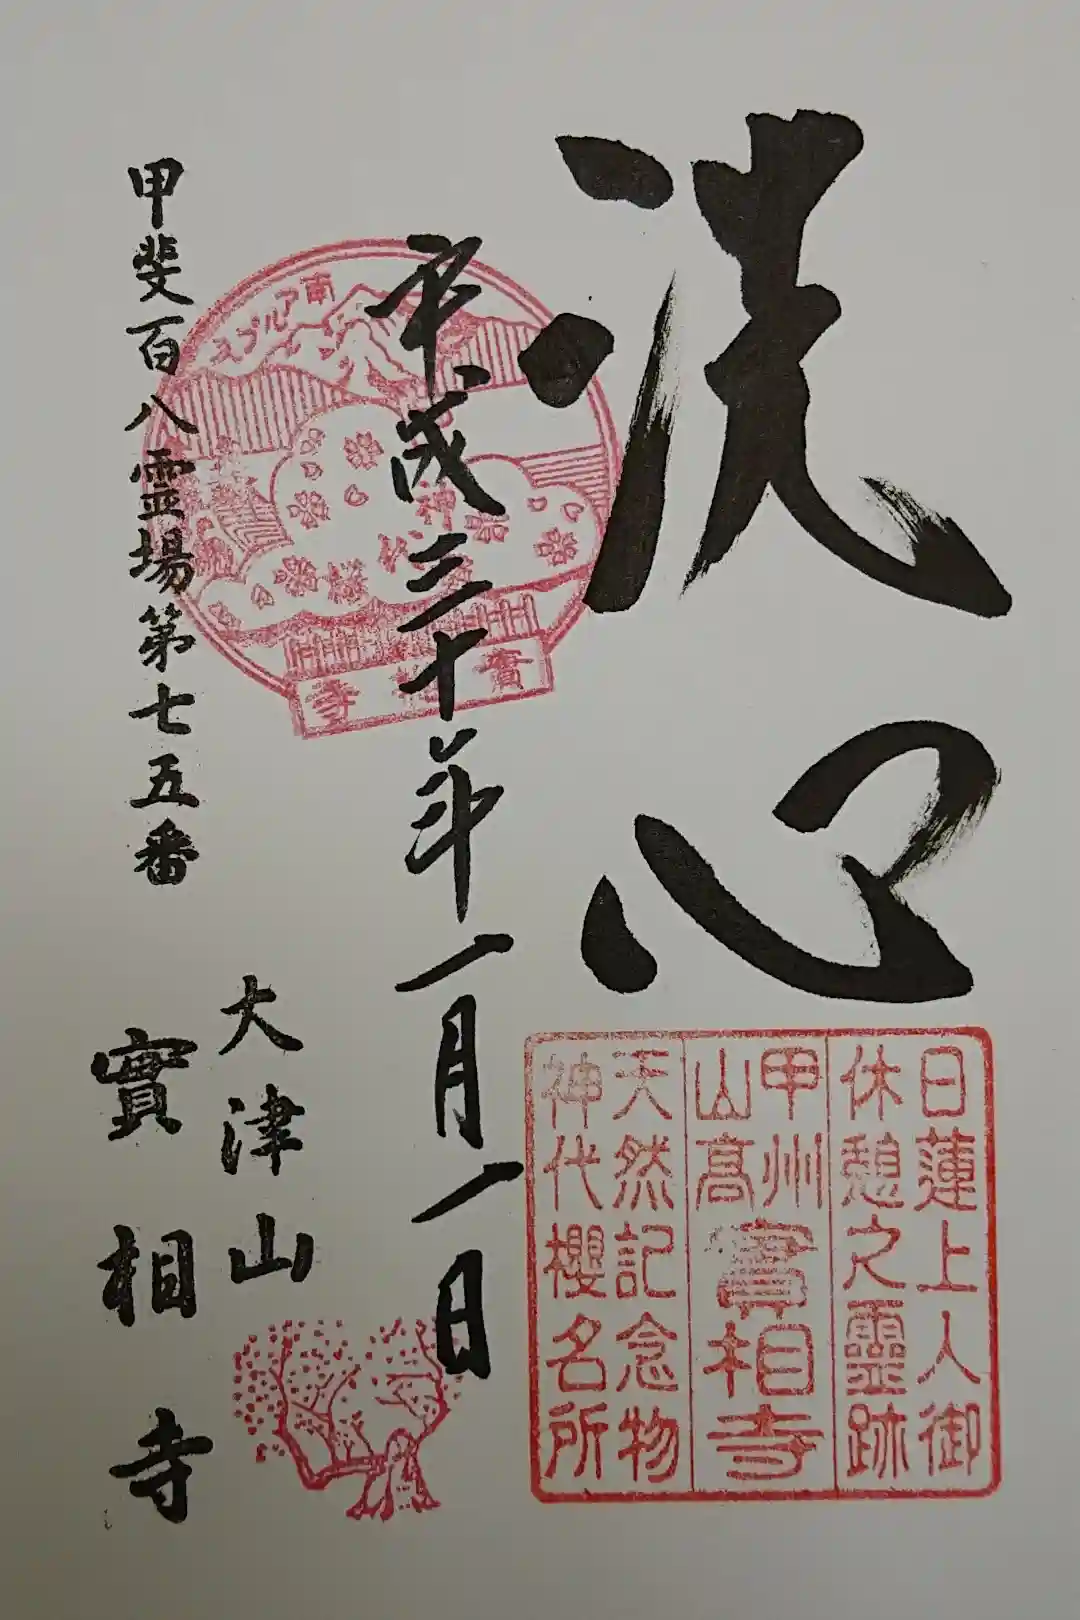 洗心
日蓮上人御
休憩之靈跡
甲州
山高
實相寺
天然記念物
神代櫻名所
平成三十年一月一日
南アルプス
神代桜
實相寺
大津山
實相寺
甲斐百八霊場第七五番